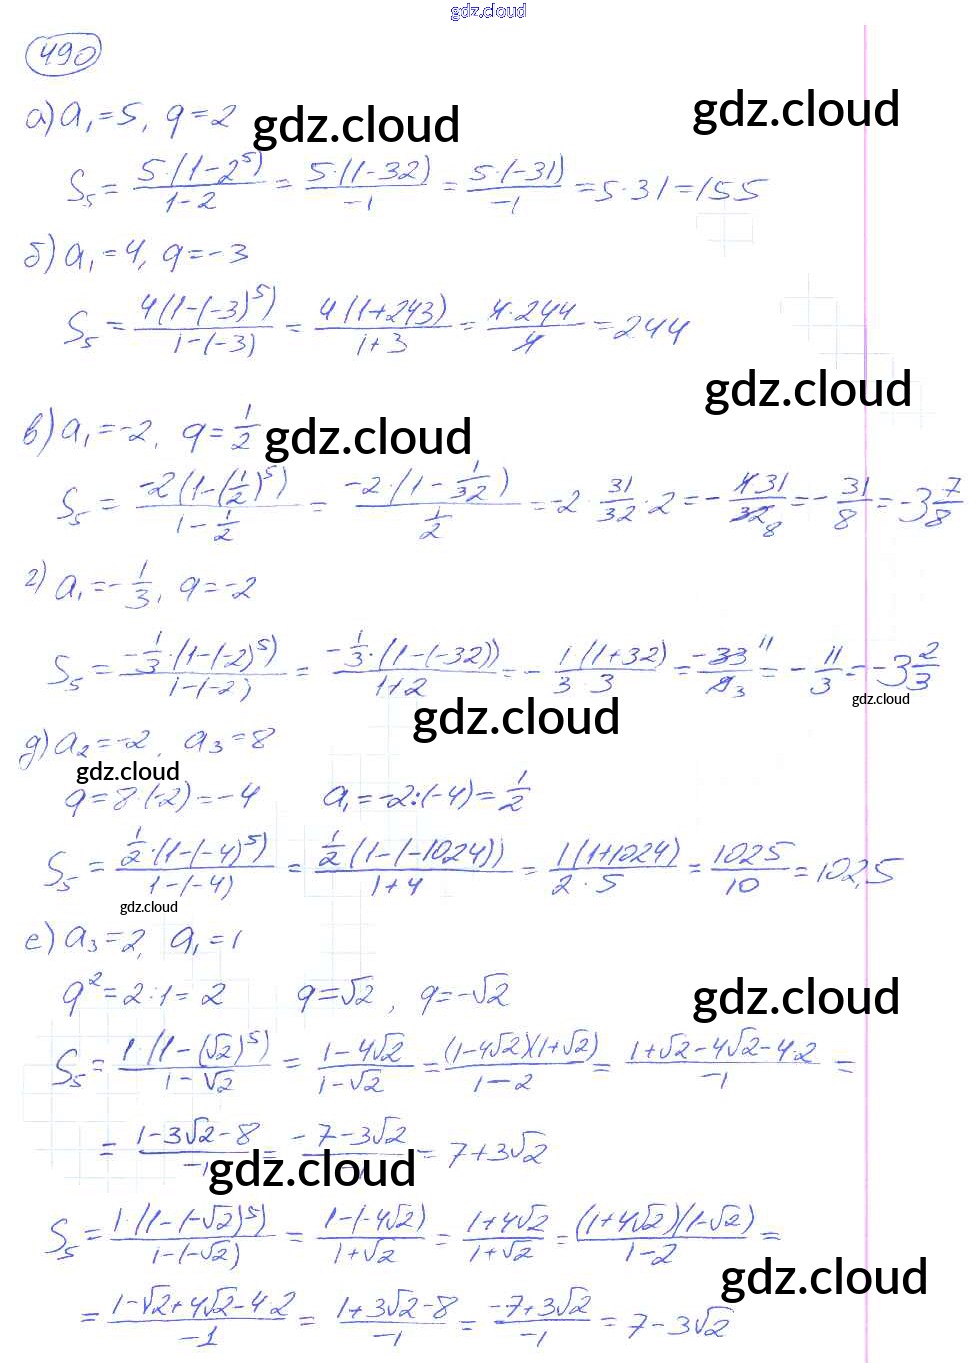 gdz.cloud
490
а) a₁=5, q=2
gdz.cloud
gdz.cloud
S₅ = 5·(1-2⁵)/1-2 = 5·(1-32)/-1 = 5·(-31)/-1 = 5·31=155
б) a₁=4, q=-3
S₅ = 4(1-(-3)⁵)/1-(-3) = 4(1+243)/1+3 = 4·244/4 = 244
gdz.cloud
в) a₁=-2, q=1/2
gdz.cloud
S₅ = -2(1-(1/2)⁵)/1-1/2 = -2·(1-1/32)/1/2 = -2·31/32·2 = -4·31/32 8 = -31/8 = -3 7/8
г) a₁=-1/3, q=-2
S₅ = -1/3·(1-(-2)⁵)/1-(-2) = -1/3·(1-(-32))/1+2 = -1(1+32)/3·3 = -33 11/9 3 = -11/3 = -3 2/3
gdz.cloud
gdz.cloud
д) a₂=-2, a₃=8
gdz.cloud
q=8:(-2)=-4 a₁=-2:(-4)=1/2
S₅ = 1/2·(1-(-4)⁵)/1-(-4) = 1/2(1-(-1024))/1+4 = 1(1+1024)/2·5 = 1025/10 = 102,5
gdz.cloud
е) a₃=2, a₁=1
q²=2:1=2 q=√2, q=-√2
gdz.cloud
S₅ = 1·(1-(√2)⁵)/1-√2 = 1-4√2/1-√2 = (1-4√2)(1+√2)/1-2 = 1+√2-4√2-4·2/-1 =
= 1-3√2-8/-1 = -7-3√2/-1 = 7+3√2
gdz.cloud
S₅ = 1·(1-(-√2)⁵)/1-(-√2) = 1-(-4√2)/1+√2 = 1+4√2/1+√2 = (1+4√2)(1-√2)/1-2 =
gdz.cloud
= 1-√2+4√2-4·2/-1 = 1+3√2-8/-1 = -7+3√2/-1 = 7-3√2